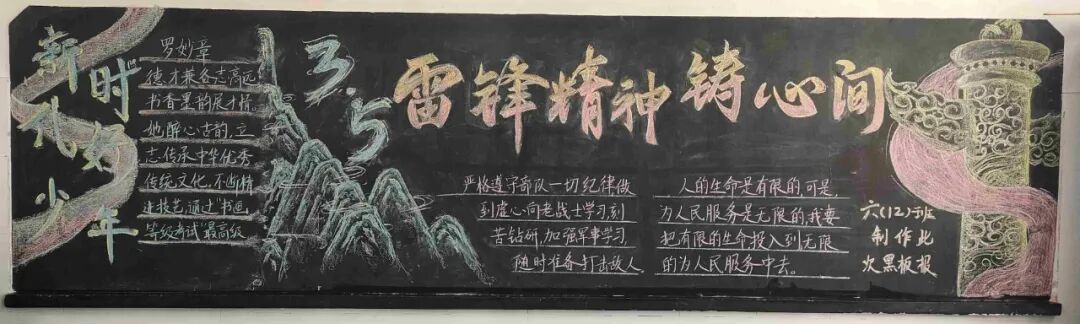 新时代好少年
罗妙章
德才兼备志高远
书香墨韵展才情。
她醉心古韵,立
志传承中华优秀
传统文化,不断精
进技艺,通过“书画
等级考试”最高级
3.5
雷锋精神铸心间
严格遵守部队一切纪律做
到虚心向老战士学习,刻
苦钻研,加强军事学习,
随时准备打击敌人。
人的生命是有限的,可是,
为人民服务是无限的,我要
把有限的生命投入到无限
的为人民服务中去。
六(12)班
制作此
次黑板报